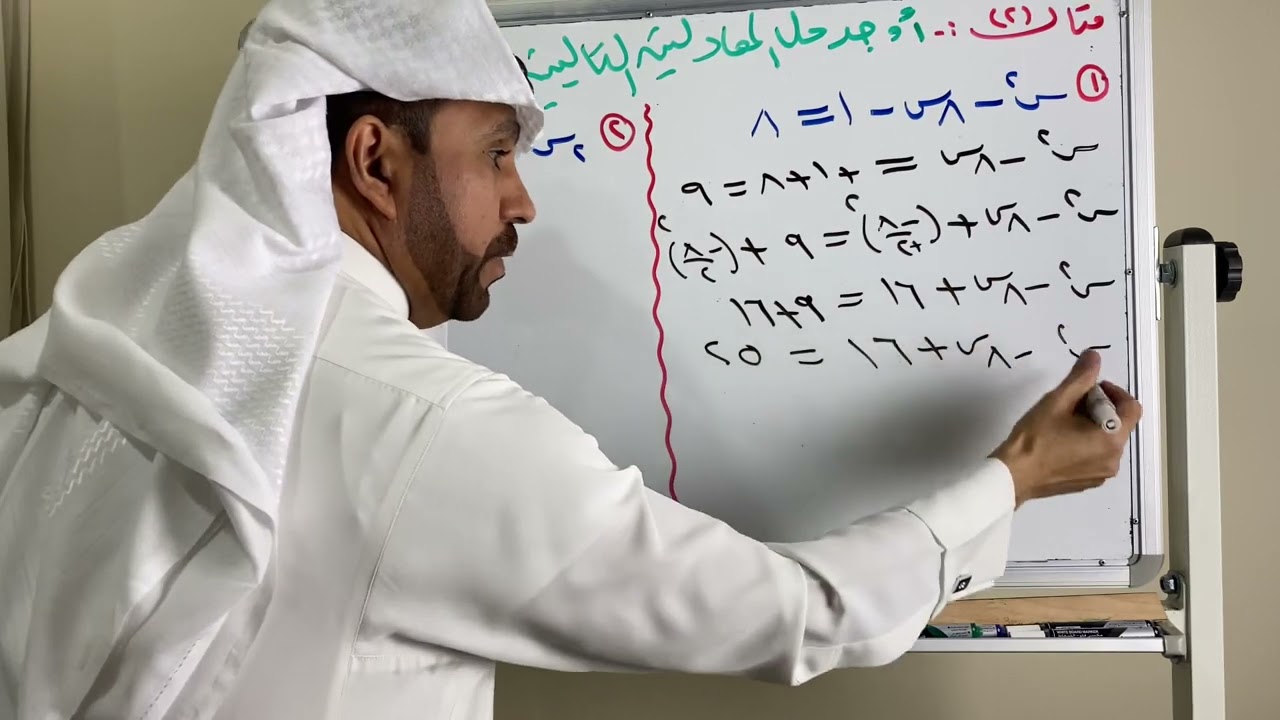 مثال (٢) :- أوجد حل المعادلة التالية
① س٢ - ٨س - ١ = ٨
س٢ - ٨س = +١+٨ = ٩
س٢ - ٨س + (-٨/+٢)٢ = ٩ + (-٨/٢)٢
س٢ - ٨س + ١٦ = ٩+١٦
س٢ - ٨س + ١٦ = ٢٥
② س٢